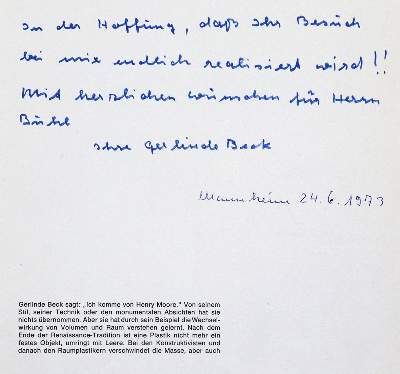 In der Hoffnung, daß Ihr Besuch
bei mir endlich realisiert wird!!
Mit herzlichen Wünschen für Herrn
Buhl
Ihre Gerlinde Beck
Mannheim 24.6.1973
Gerlinde Beck sagt: „Ich komme von Henry Moore.“ Von seinem
Stil, seiner Technik oder den monumentalen Absichten hat sie
nichts übernommen. Aber sie hat durch sein Beispiel die Wechsel-
wirkung von Volumen und Raum verstehen gelernt. Nach dem
Ende der Renaissance-Tradition ist eine Plastik nicht mehr ein
festes Objekt, umringt mit Leere. Bei den Konstruktivisten und
danach den Raumplastikern verschwindet die Masse, aber auch